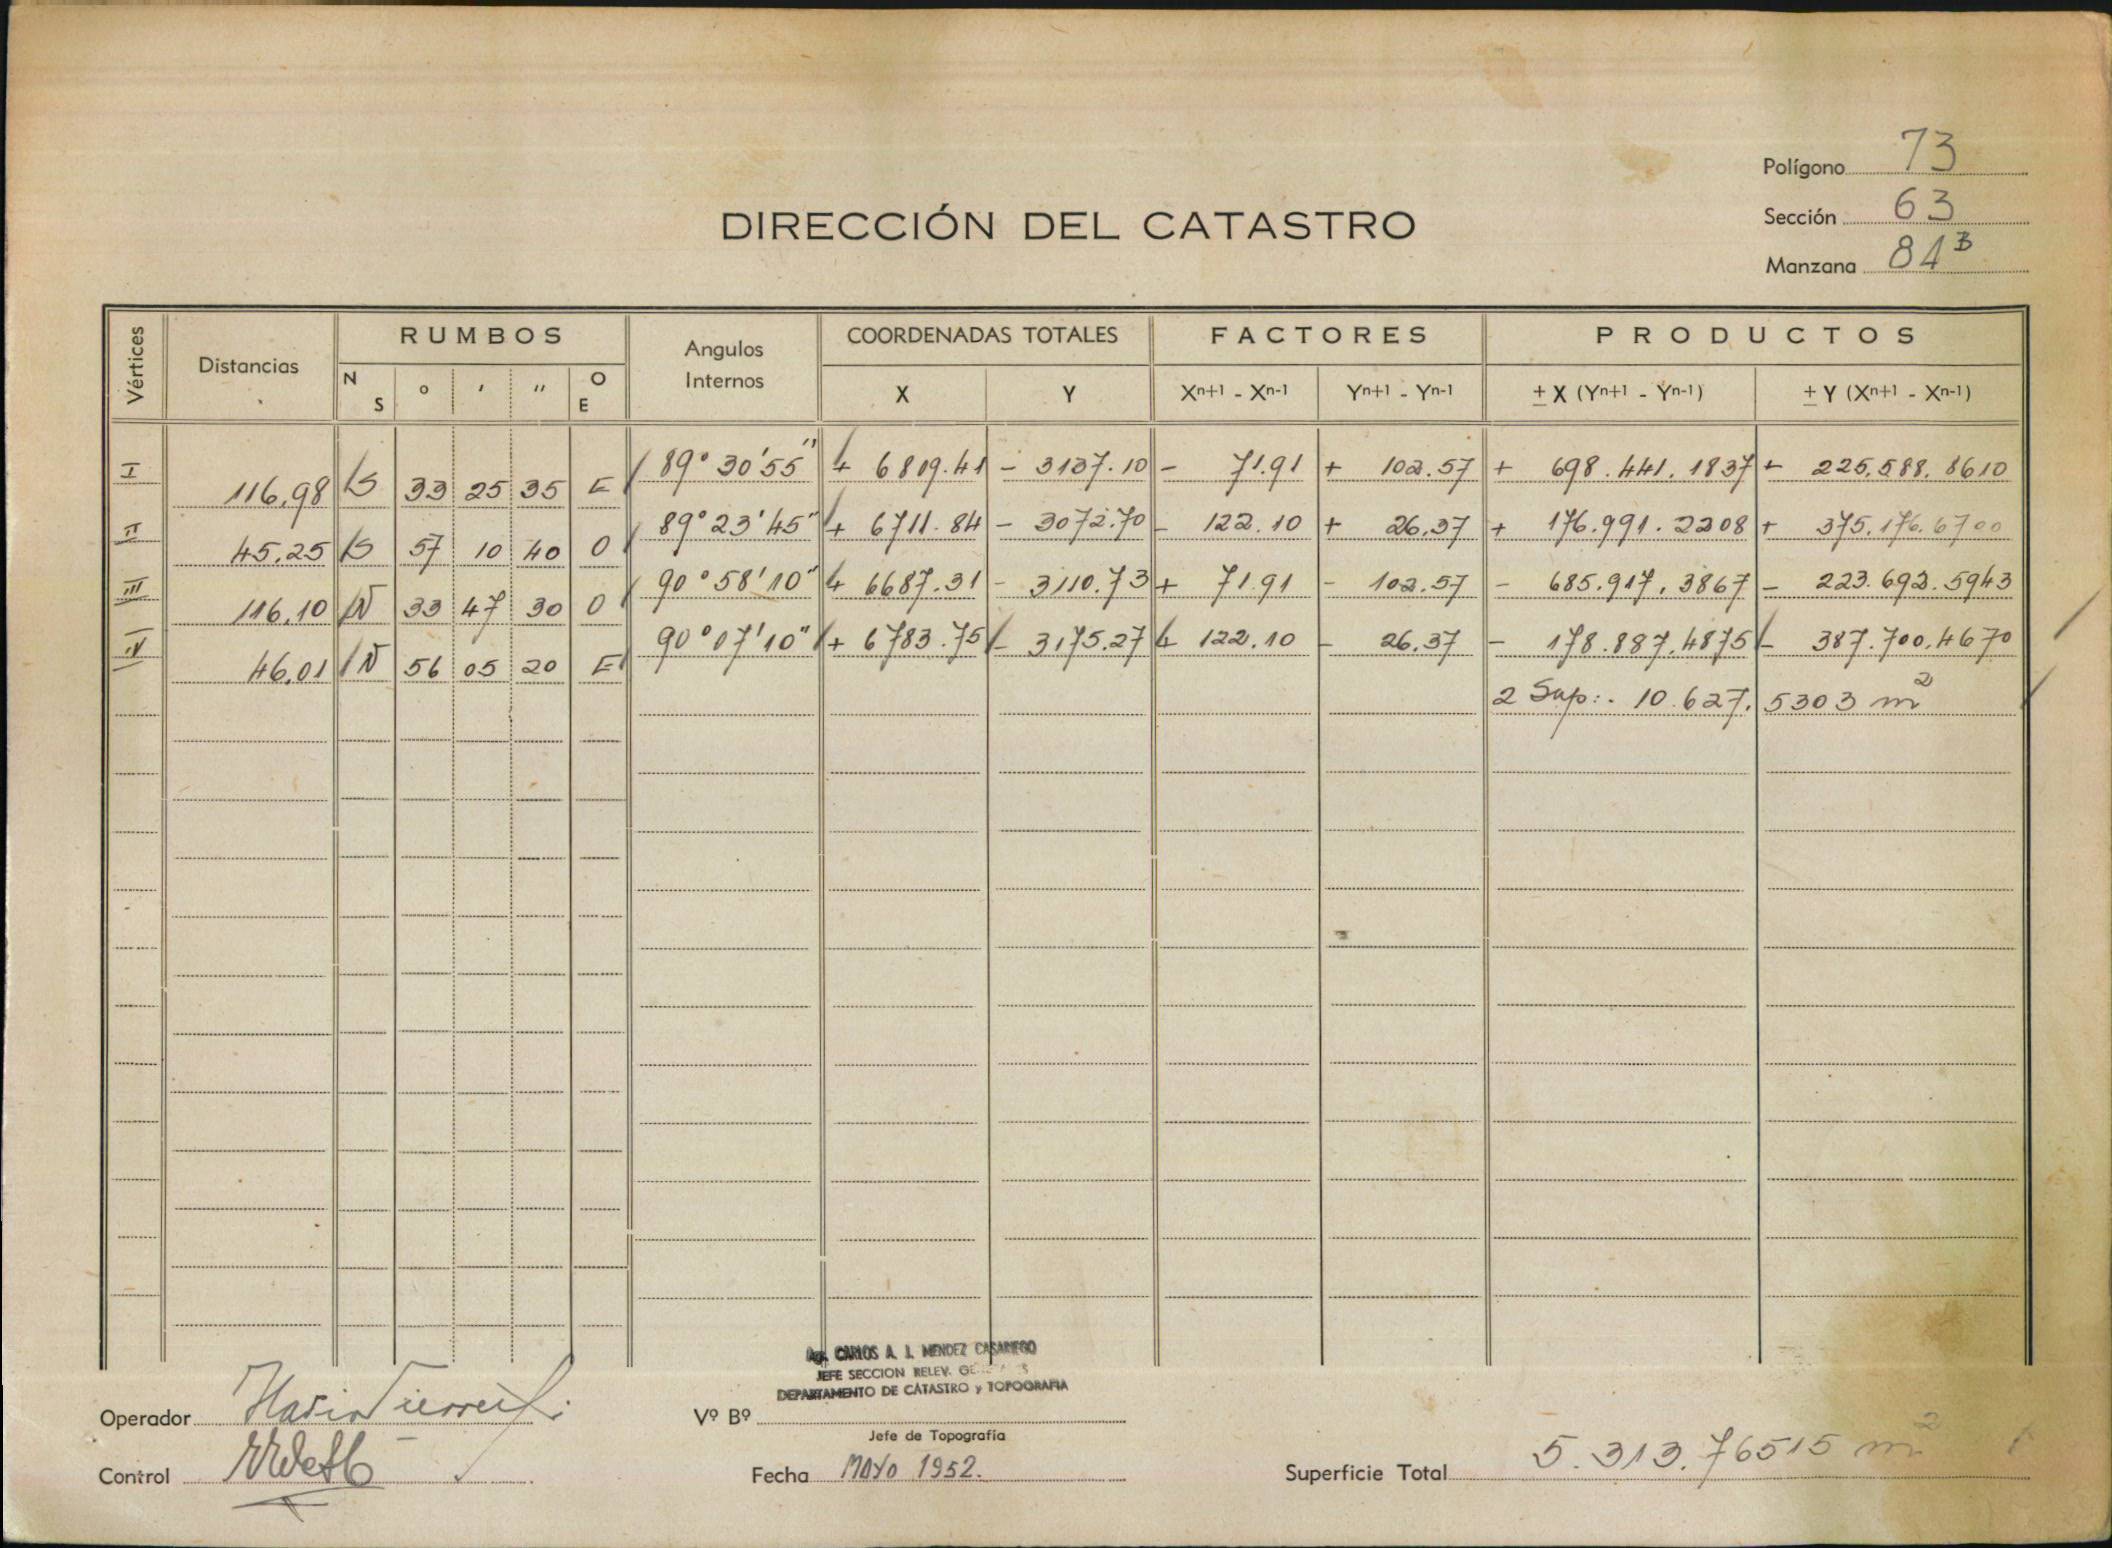 Polígono 73
Sección 63
Manzana 84 B
DIRECCIÓN DEL CATASTRO
Vértices Distancias RUMBOS Angulos Internos COORDENADAS TOTALES FACTORES PRODUCTOS
N S ° ' " O E X Y Xn+1 - Xn-1 Yn+1 - Yn-1 ± X (Yn+1 - Yn-1) ± Y (Xn+1 - Xn-1)
I 116,98 S 33 25 35 E 89° 30' 55" + 6809.41 - 3137.10 - 71.91 + 102.57 + 698.441.1837 + 225.588.8610
II 45.25 S 57 10 40 O 89° 23' 45" + 6711.84 - 3072.70 - 122.10 + 26.37 + 176.991.2208 + 375.176.6700
III 116,10 N 33 47 30 O 90° 58' 10" + 6687.31 - 3110.73 + 71.91 - 102.57 - 685.917.3867 - 223.692.5943
IV 46,01 N 56 05 20 E 90° 07' 10" + 6783.75 - 3175.27 + 122.10 - 26.37 - 178.887.4875 - 387.700.4670
2 Sup:. 10.627,5303 m2
CARLOS A. J. MENDEZ CASARIEGO
JEFE SECCION RELEV.
DEPARTAMENTO DE CATASTRO y TOPOGRAFIA
Operador
Vº Bº
Jefe de Topografía
Control
Fecha MAYO 1952.
Superficie Total 5.313.76515 m2